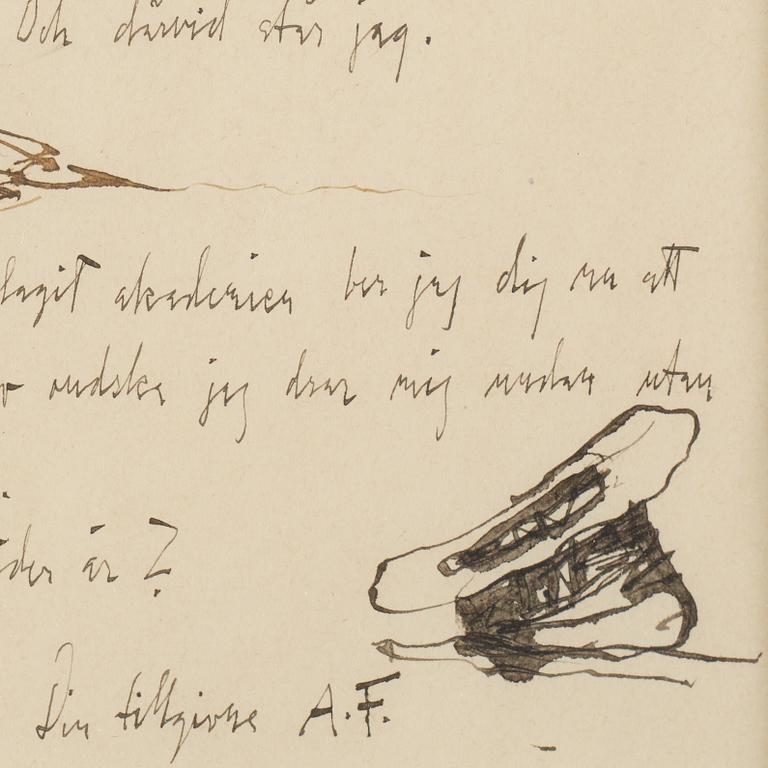 Och därvid står jag.
lagit akademien ber jag dig nu att
ondska jag drar mig undan utan
är?
Din tillgivne A.F.